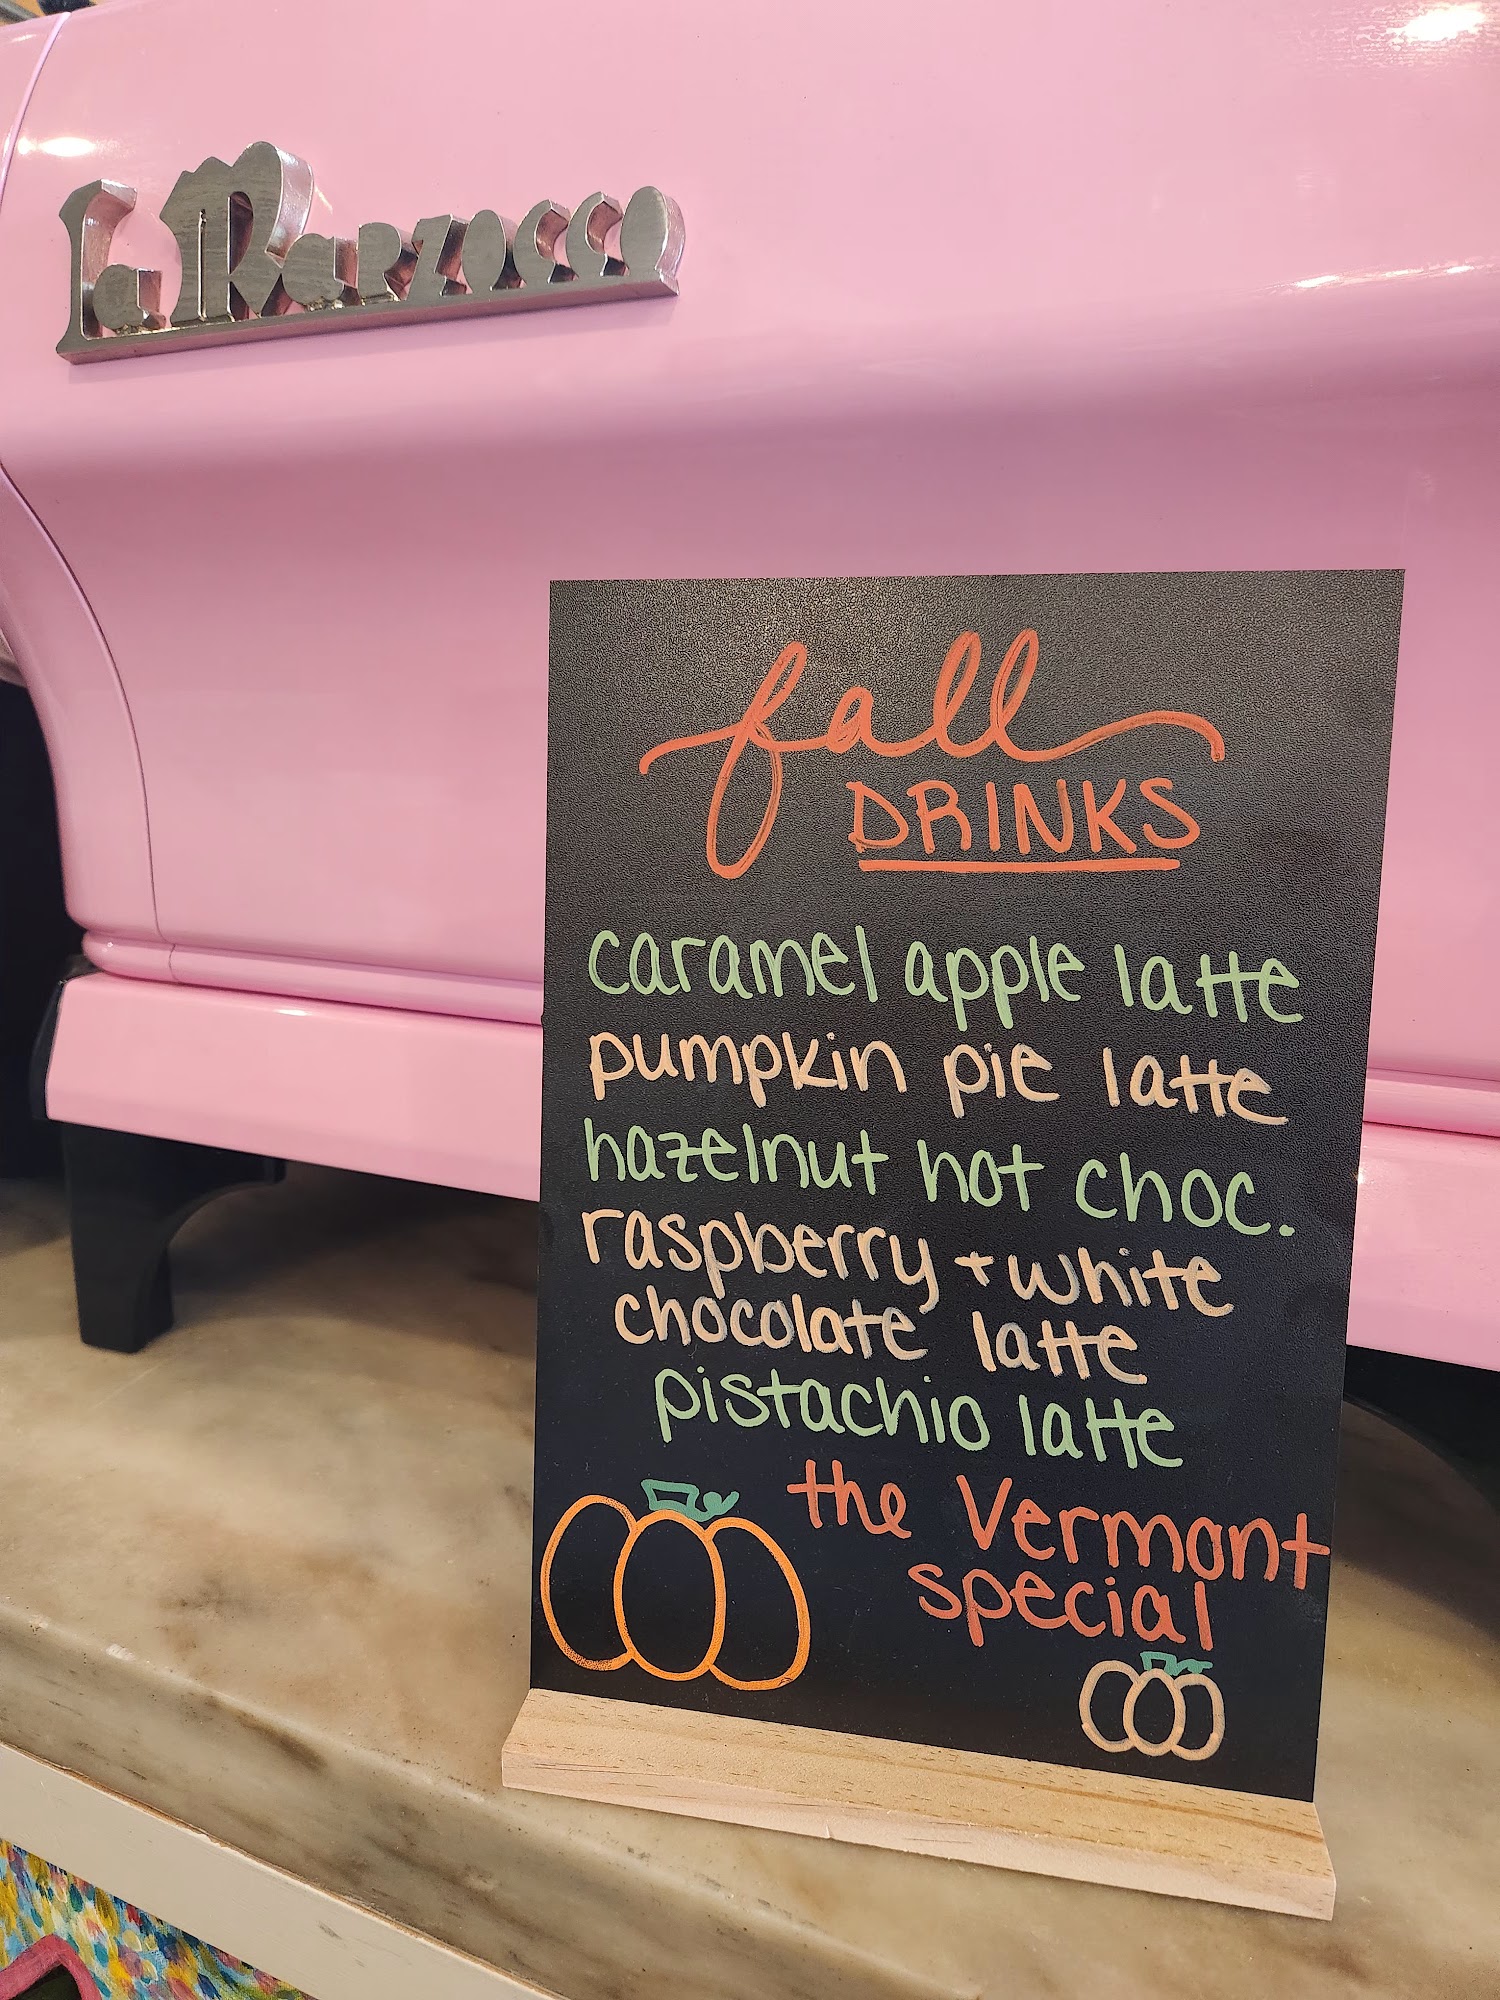 La Marzocco
fall
DRINKS
caramel apple latte
pumpkin pie latte
hazelnut hot choc.
raspberry + white
chocolate latte
pistachio latte
the Vermont
special